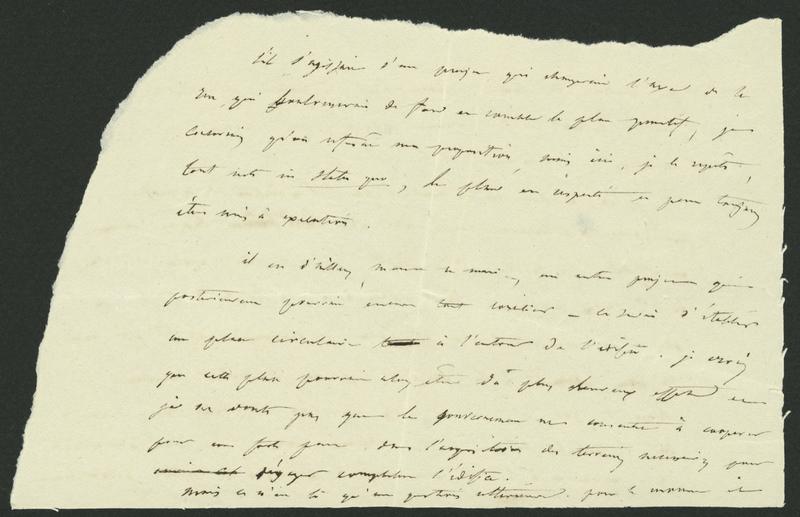 s'il s'agissait d'un projet qui changerait l'axe de la
rue, qui bouleverserait de fond en comble le plan primitif, je
concevrais qu'on refusât ma proposition, mais ici, je le répète,
tout reste in statu quo, le plan est respecté et peut toujours
être mis à exécution.
il est d'ailleurs, monsieur le maire, un autre projet qui
postérieurement pourrait encore tout concilier — ce serait d'établir
un plan circulaire à l'entour de l'édifice. je crois
que cette place pourrait alors être du plus heureux effet et
je ne doute pas que le gouvernement ne consente à coopérer
pour une forte part dans l'acquisition des terrains nécessaires pour
dégager complètement l'édifice.
mais ce n'est là qu'une question ultérieure. pour le moment il